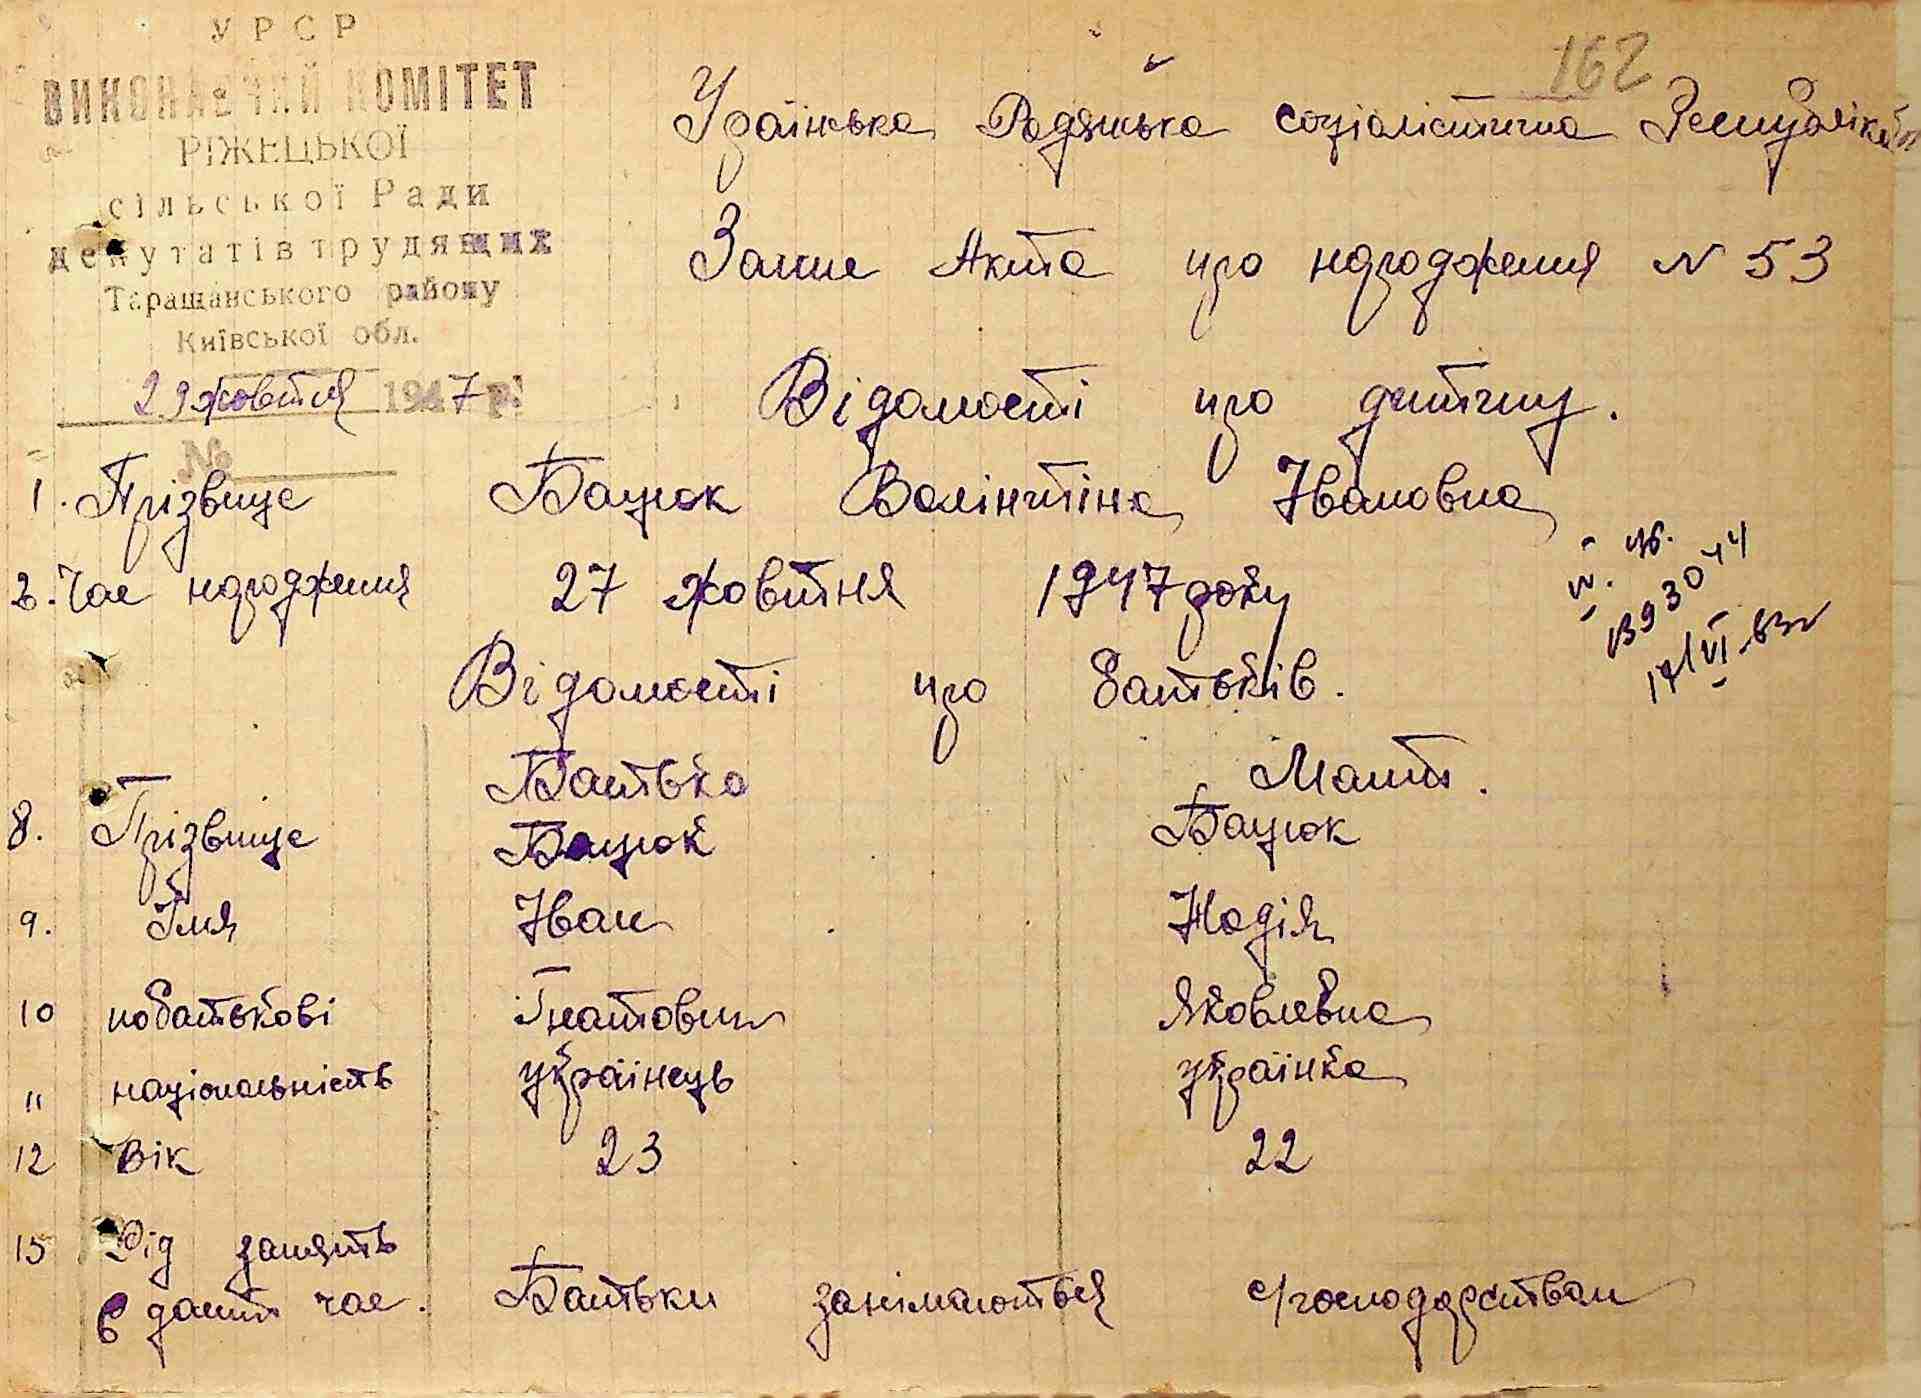 162
УРСР
ВИКОНАВЧИЙ КОМІТЕТ
РІЖЕЦЬКОЇ
сільської Ради
депутатів трудящих
Таращанського району
Київської обл.
29 жовтня 1947 р.
№
Українська Радянська соціалістична Республіка
Запис Акта про народження N 53
Відомості про дитину.
1. Прізвище Бацюк Валінтіна Івановна
2. Час народження 27 жовтня 1947 року
Відомості про батьків.
Батько Мати.
8. Прізвище Бацюк Бацюк
9. Імя Іван Надія
10 побатькові Гнатович Яковлевна
11 національність українець українка
12 Вік 23 22
15 Рід занять
в даний час. Батьки занімаються с/господарством